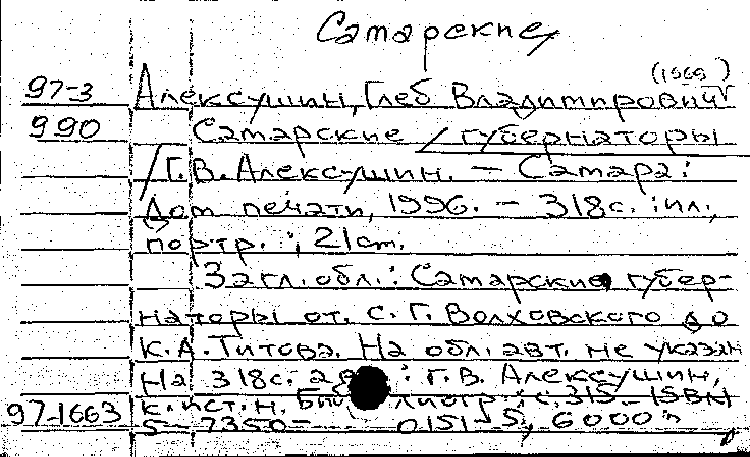 Самарские
(1969)
97-3 Алексушин, Глеб Владимирович
990 Самарские / губернаторы
/ Г. В. Алексушин. — Самара :
Дом печати, 1996. — 318 с. : ил.,
портр. ; 21 cm.
Загл. обл.: Самарские губер-
наторы от. С. Г. Волховского до
К. А. Титова. На обл. авт. не указан
На 318 с. : Г. В. Алексушин,
к. ист. н. с. 315. - ISBN
97-1663 5-7350- 0151-5, 6000